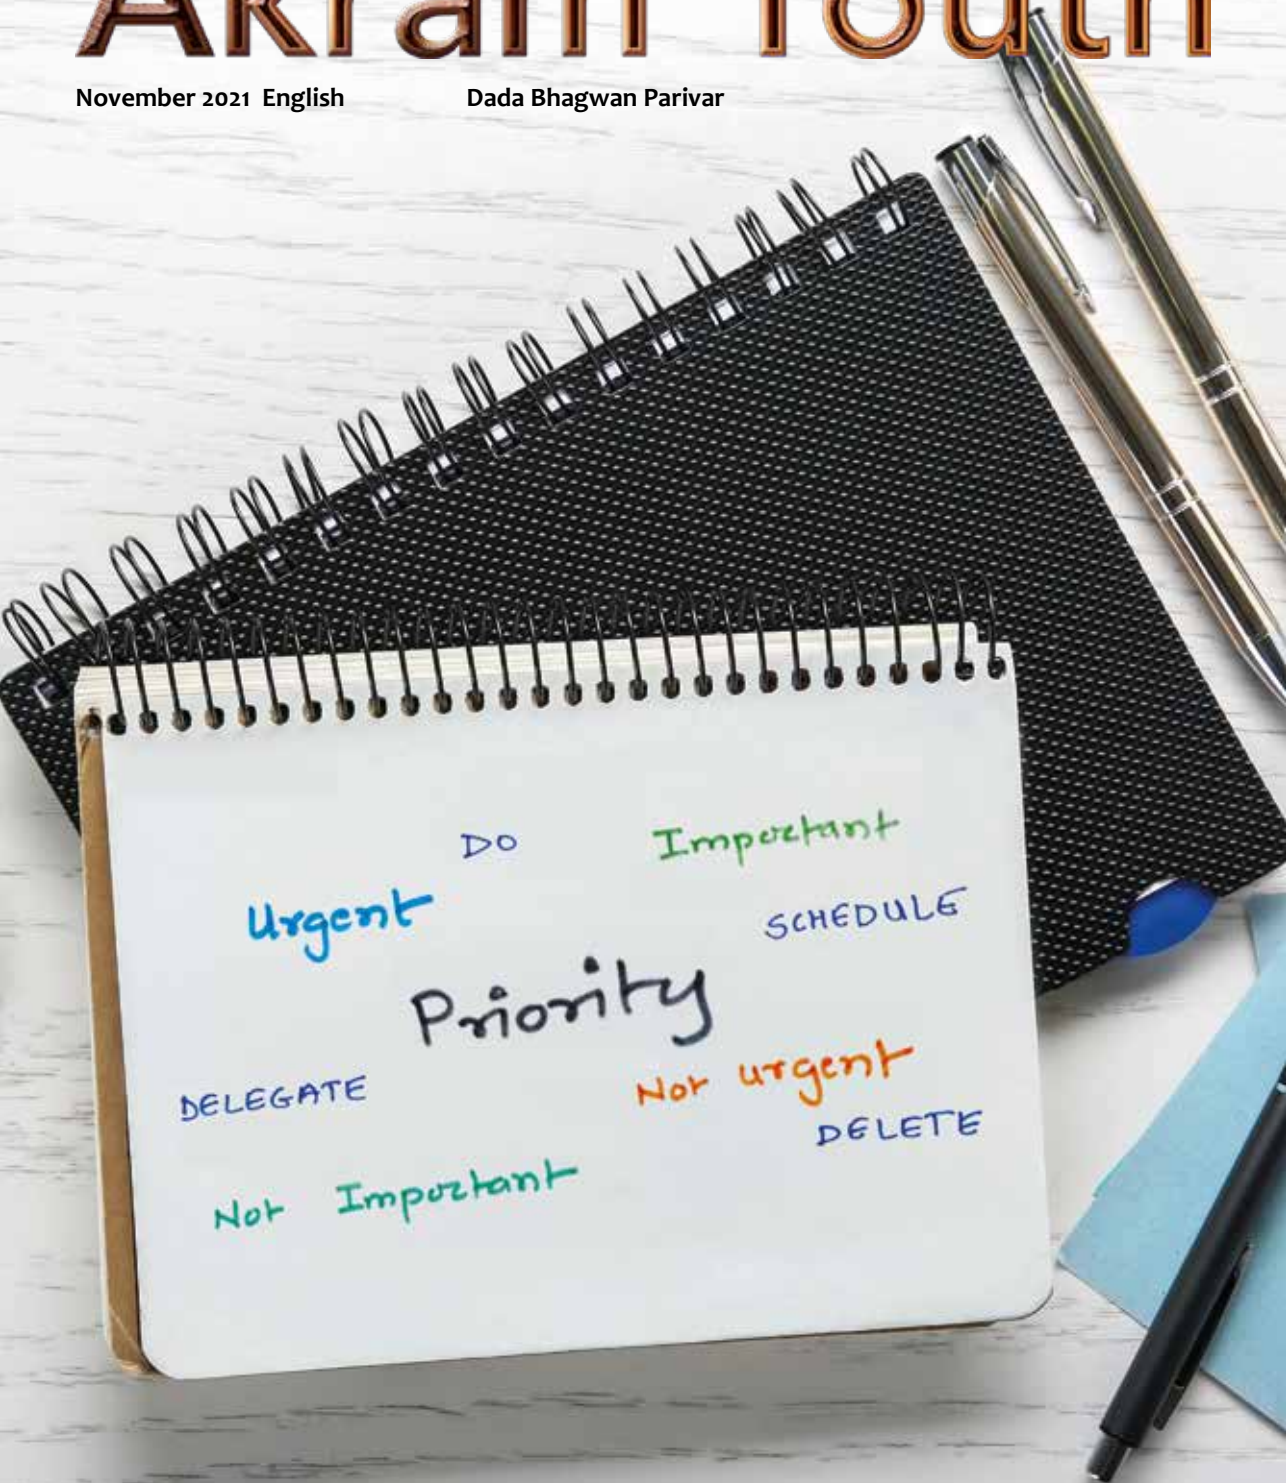 Akram Youth
November 2021 English
Dada Bhagwan Parivar
DO
Important
Urgent
SCHEDULE
Priority
DELEGATE
Not urgent
DELETE
Not Important